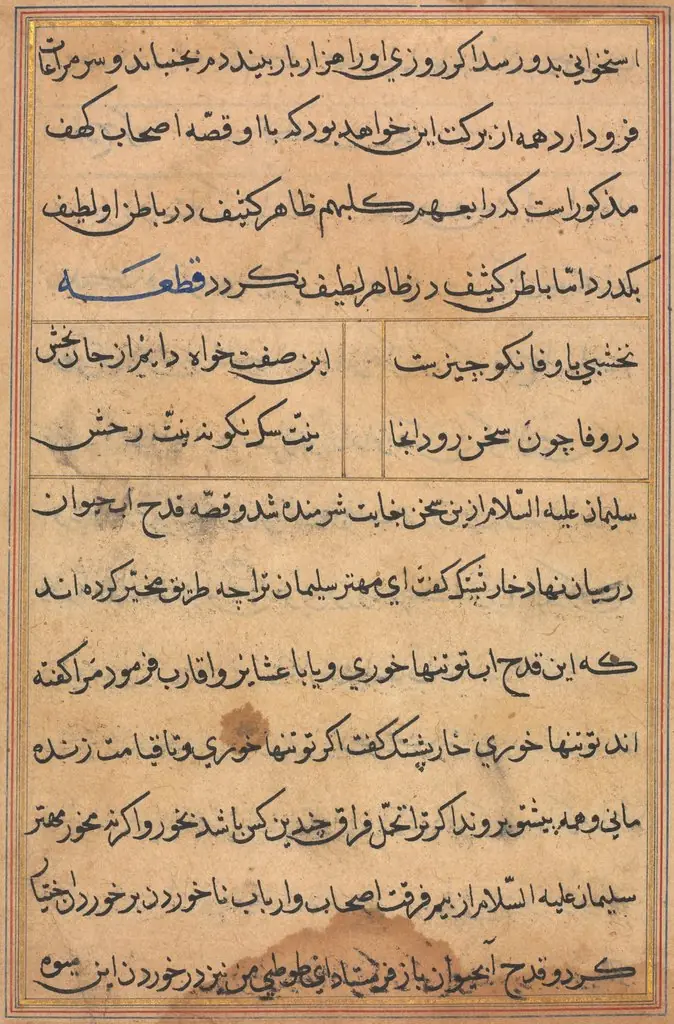 استخواني بدو رسد اكر روزي او را هزار بار بيند دم بجنباند و سر مراعات
فرو دارد همه از بركت اين خواهد بود كه با او قصّه اصحاب كهف
مذكور است كه رابعهم كلبهم ظاهر كثيف در باطن او لطيف
بكدرد امّا باطن كثيف در ظاهر لطيف نكردد قطعه
نخشبي با وفا نكو چيزست اين صفت خواه دايم از جان بخش
در وفا چون سخن رود انجا سك نكو نه رخش
سليمان عليه السّلام ازين سخن بغايت شرمنده شد و قصّه قدح اب حيوان
درميان نهاد خارپشتك كفت اي مهتر سليمان ترا چه طريق مخيّر كرده اند
كه اين قدح اب تو تنها خوري و يا با عشاير و اقارب فرمود مرا كفته
اند تو تنها خوري خارپشتك كفت اكر تو تنها خوري و تا قيامت زنده
ماني و همه پيش تو بروند اكر ترا تحمّل فراق چندين كس باشد بخور و اكر نه مخور مهتر
سليمان عليه السّلام از بيم فرقت اصحاب و ارباب ناخوردن بر خوردن اختيار
كرد و قدح آبحيوان باز فرستاد اي طوطي من نيز در خوردن اين ميوه